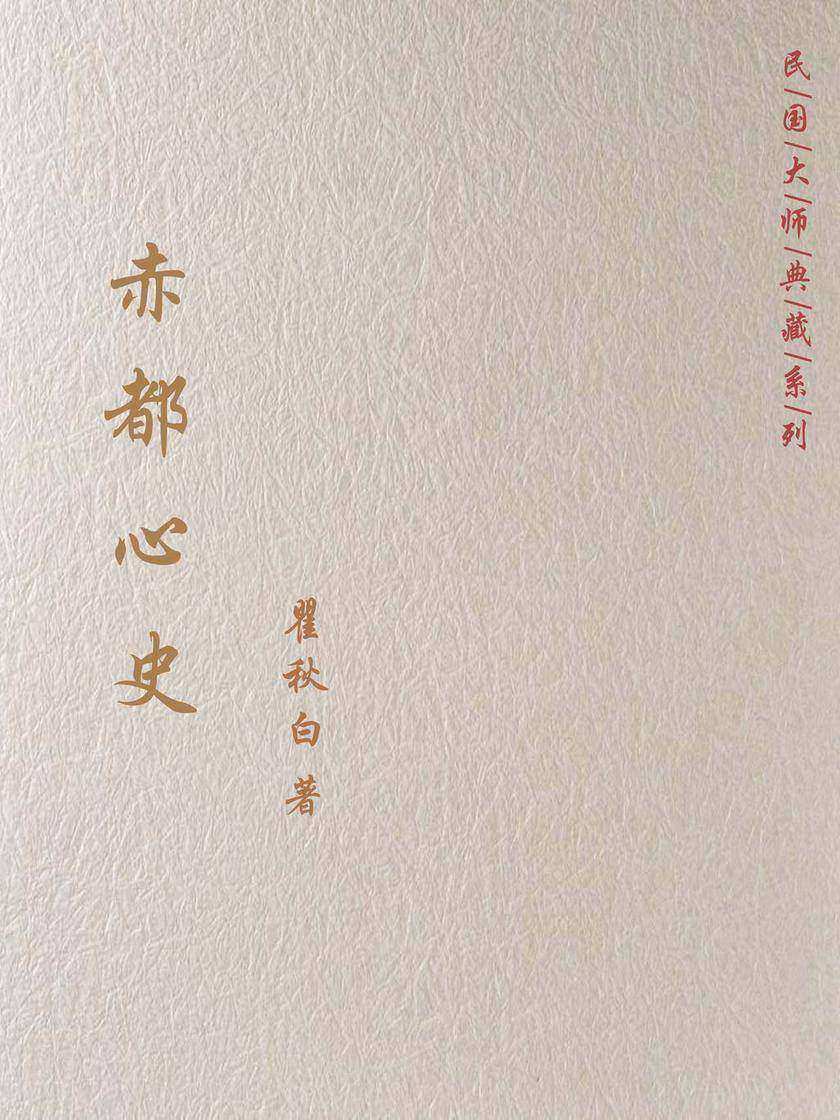 民国大师典藏系列
赤都心史
瞿秋白 著